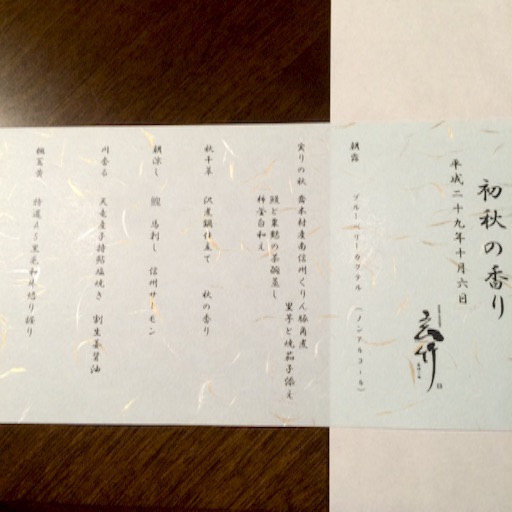 初秋の香り
平成二十九年十月六日
玄竹
朝露 ブルーベリーカクテル (ノンアルコール)
実りの秋 喬木村産南信州くりん豚角煮
里芋と焼茄子添え
鰻と栗麩の茶碗蒸し
柿釜白和え
秋千草 沢煮鍋仕立て 秋の香り
朝涼し 鯉 馬刺し 信州サーモン
川香る 天竜産子持鮎塩焼き 割生姜醤油
特選A5黒毛和牛